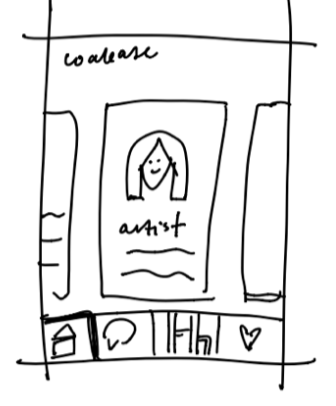 coalease
artist